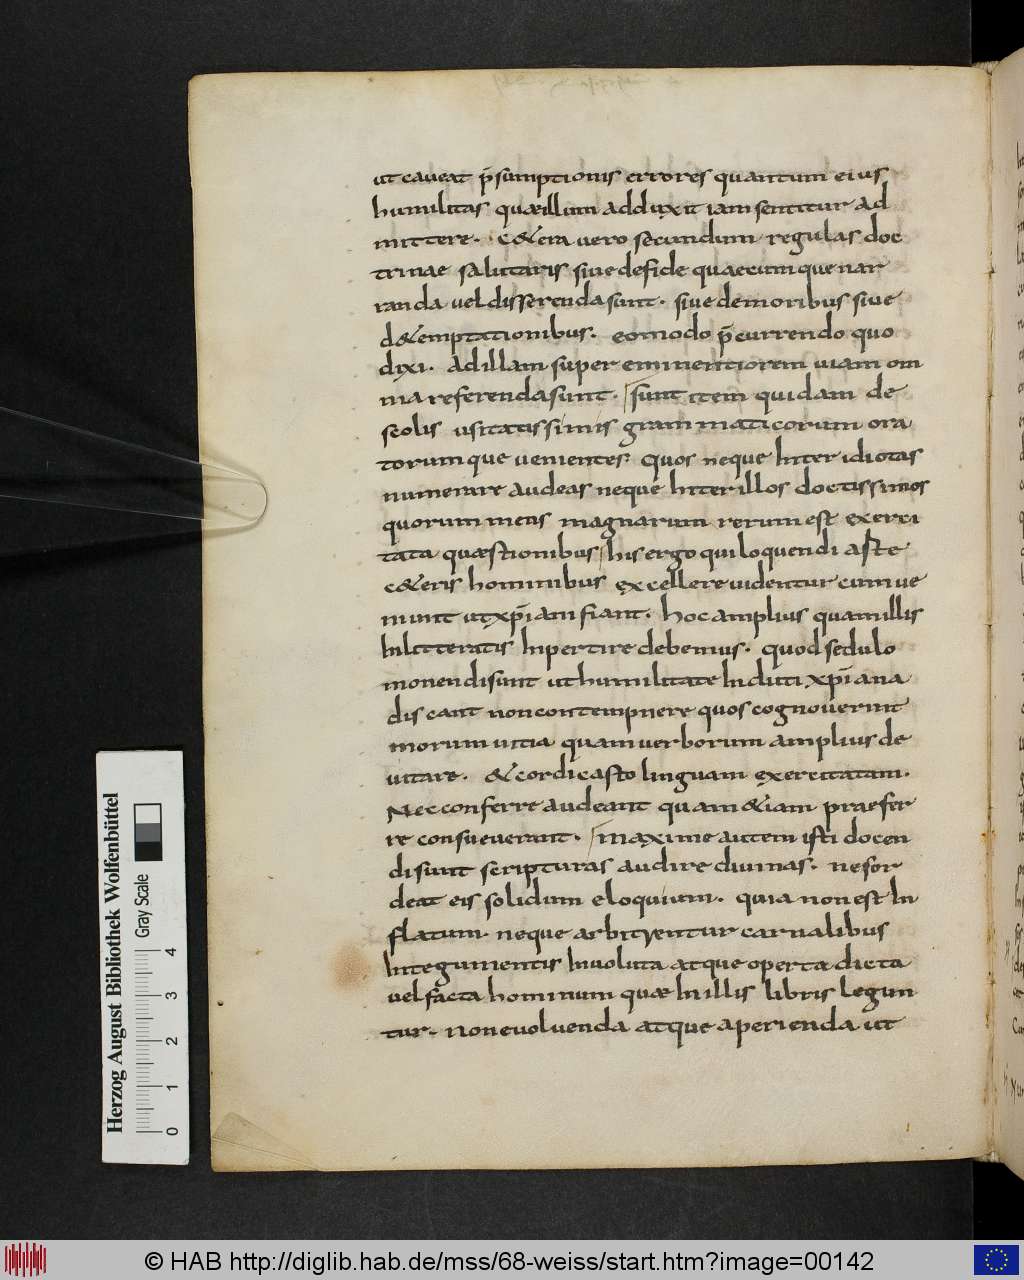 ut caveat p̄sumptionis errores quantum eius
humilitas quæillum adduxit iam sentitur ad
mittere. c&era vero secundum regulas doc
trinae salutaris sive defide quaecumque nar
randa vel disserenda sunt. sive de moribus sive
d&emptationibus. eo modo p̄currendo quo
dixi. Ad illam super eminentiorem uiam om
nia referenda sunt. sunt item quidam de
scolis usitatissimis grammaticorum ora
torumque venientes. quos neque Inter idiotas
numerare audeas neque Inter illos doctissimos
quorum mens magnarum rerum est exerci
tata quæstionibus his ergo qui loquendi aste
c&eris hominibus excellere uidentur cum ve
niunt ut xp̄iani fiant. hoc amplius quam illis
Inlitteratis Inpertire debemus. quod sedulo
monendi sunt ut humilitate Induti xp̄iana
discant non contempnere quos cognoverint
morum uitia quam verborum amplius de
uitare. & cordi casto linguam exercitatam.
Nec conferre audeant quam &iam praefer
re consueverant. maxime autem isti docen
di sunt scripturas audire diuinas. ne sor
deat eis solidum eloquium. quia non est In
flatum. neque arbitrentur carnalibus
Integumentis Involuta atque operta dicta
vel facta hominum quæ In illis libris legun
tur. non evolvenda atque aperienda ut
Herzog August Bibliothek Wolfenbüttel
Gray Scale
0 1 2 3 4
© HAB http://diglib.hab.de/mss/68-weiss/start.htm?image=00142